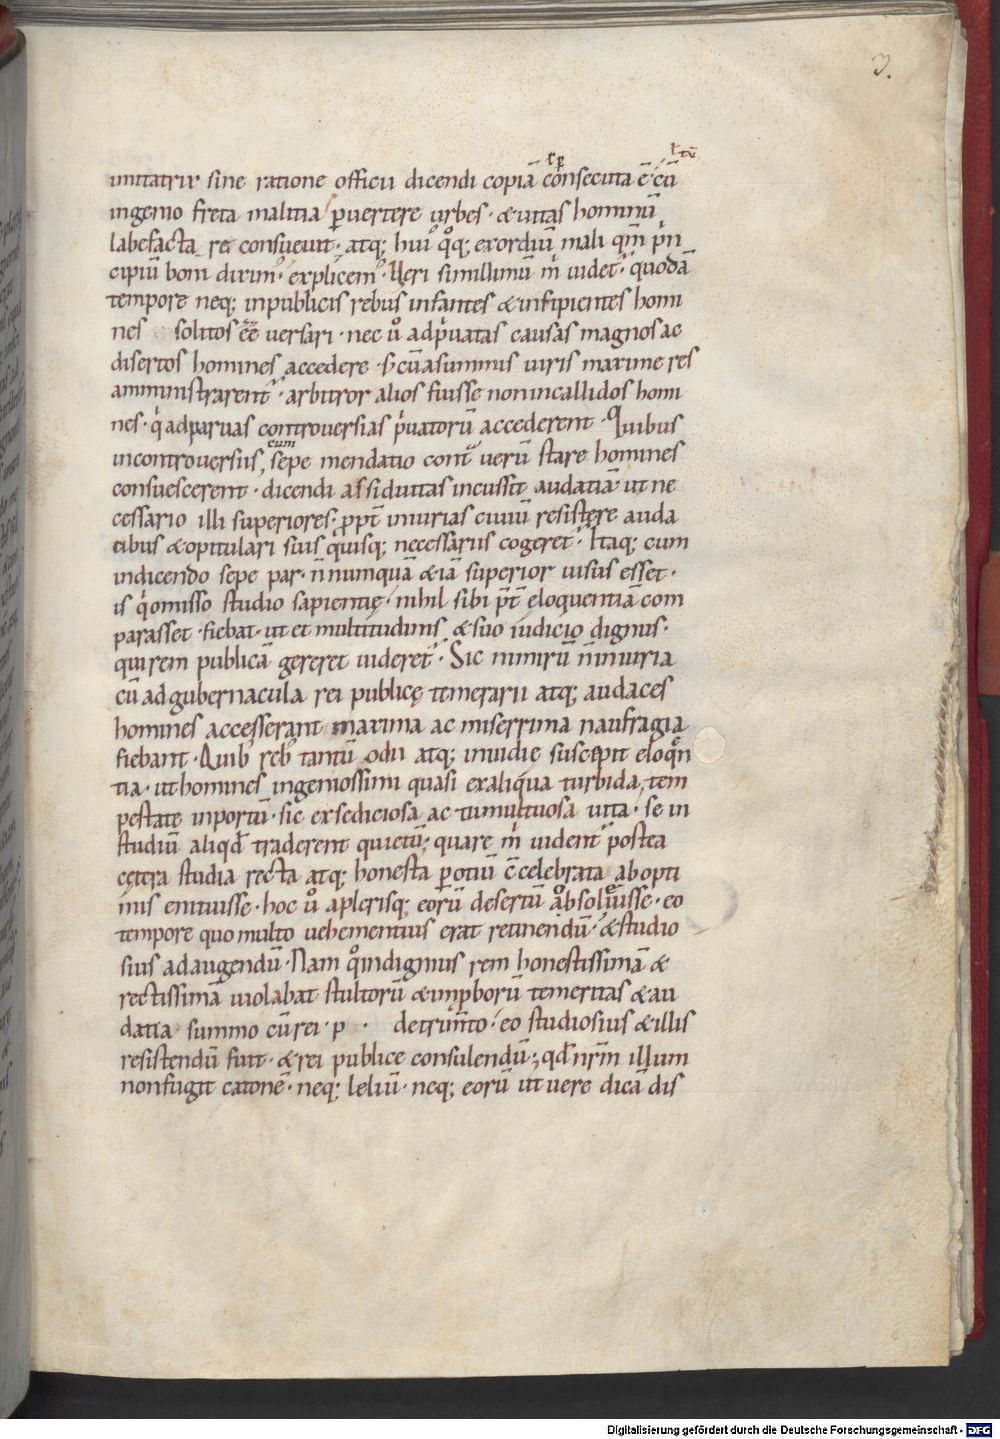 3.
ł tū
r̄ p̱
imitatrix sine ratione officii dicendi copiā consecuta ē· cū
ingenio freta malitia p̱uertere urbes· & uitas hominū
labefactare consueuit· atq; hui᾿ qͦq; exordiū mali qm̄ pⁱn
cipiū boni diximᵒ· explicemᵒ. Ueri simillimū mⁱ uidet᷑· quodā
tempore neq; inpublicis rebus infantes & insipientes homi
nes solitos ēē uersari· nec uͦ adpⁱuatas causas magnos ac
disertos homines accedere· s; cū asummis uiris maxime res
amministrarent᷑· arbitror alios fuisse non incallidos homi
nes· qⁱ adparuas controuersias pⁱuatorū accederent· Quibus
cum
incontrouersiis sepe mendatio contᵃ uerū stare homines
consuescerent· dicendi assiduitas incussit audatiā· ut ne
cessario illi superiores· ppt̄ iniurias ciuiū resistere auda
cibus & opitulari suis qⁱuisq; necessariis cogeret᷑. Itaq; cum
indicendo sepe par· n̄numquā & iā superior uisus esset·
is qⁱ omisso studio sapientię· nihil sibi pt̄ eloquentiā com
parasset· fiebat· ut et multitudinis & suo iudicio dignus·
qui rem publicā gereret uideret᷑. Sic nimirū n̄ iniuria
cū ad gubernacula rei publicę temerarii atq; audaces
homines accesserant maxima ac miserrima naufragia
fiebant. Quibᵒ rebᵒ tantū odii atq; inuidie suscepit eloqͤn
tia· ut homines ingeniossimi quasi exaliqua turbida tem
pestate inportū· sic ex sediciosa ac tumultuosa uita· se in
studiū aliqd̄ traderent quietū· quare mⁱ uident᷑ postea
cętera studia recta atq; honesta p̱ otiū c̄celebrata ab opti
mis enituisse· hoc uͦ aplerisq; eorū desertū absoluisse· eo
tempore quo multo uehementius erat retinendū· & studio
sius adaugendū. Nam qͦ indignius rem honestissimā &
rectissimā uiolabat stultorū & imp̱borū temeritas & au
datia summo cū rei· p· detrim̄to· eo studiosius & illis
resistendū fuit· & rei publice consulendū; qd̄ nr̄m illum
non fugit catonē· neq; leliū· neq; eorū ut uere dicā dis
Digitalisierung gefördert durch die Deutsche Forschungsgemeinschaft - DFG